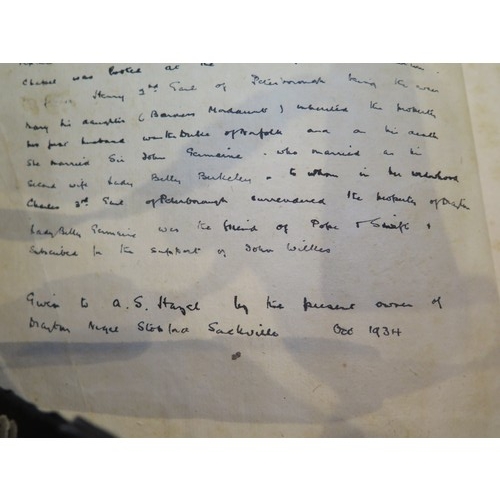 Chapel was looted at the
Henry 2nd Earl of Peterborough being the over
Mary his daughter (Baroness Mordaunt) inherited the property
her first husband was the Duke of Norfolk and on his death
She married Sir John Germaine. who married as his
second wife Lady Betty Berkeley. to whom in her widowhood
Charles 3rd Earl of Peterborough surrendered the property of Drayton
Lady Betty Germaine was the friend of Pope & Swift &
subscribed for the support of John Wilkes
Given to A. S. Hazel by the present owner of
Drayton Nigel Stopford Sackville Oct 1934